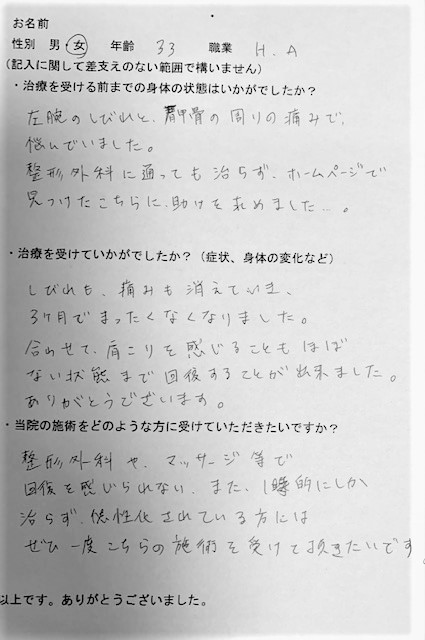 お名前
性別 男・女 年齢 33 職業 H.A
(記入に関して差支えのない範囲で構いません)
・治療を受ける前までの身体の状態はいかがでしたか?
左腕のしびれと、肩甲骨の周りの痛みで、
悩んでいました。
整形外科に通っても治らず、ホームページで
見つけたこちらに、助けを求めました…。
・治療を受けていかがでしたか?(症状、身体の変化など)
しびれも、痛みも消えていき、
3ヶ月でまったくなくなりました。
合わせて、肩こりを感じることもほぼ
ない状態まで回復することが出来ました。
ありがとうございます。
・当院の施術をどのような方に受けていただきたいですか?
整形外科や、マッサージ等で
回復を感じられない、また、的にしか
治らず、慢性化されている方には
ぜひ一度こちらの施術を受けて頂きたいです。
以上です。ありがとうございました。